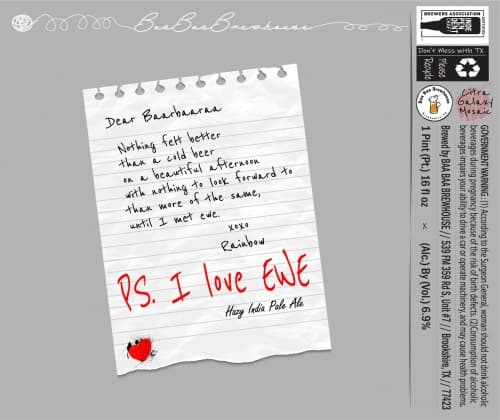 BaaBaaBrewhouse
Dear Baarbaaraa
Nothing felt better
than a cold beer
on a beautiful afternoon
with nothing to look forward to
than more of the same,
until I met ewe.
xoxo
Rainbow
PS. I love EWE
Hazy India Pale Ale
BREWERS ASSOCIATION
INDEPENDENT
CRAFT
Don't Mess with TX
Please
Recycle
Baa Baa Brewhouse
Citra
Galaxy
Mosaic
1 Pint (Pt.) 16 fl oz x (Alc.) By (Vol.) 6.9%
Brewed by BAA BAA BREWHOUSE // 539 FM 359 Rd S, Unit #7 // Brookshire, TX // 77423
GOVERNMENT WARNING: (1) According to the Surgeon General, woman should not drink alcoholic
beverages during pregnancy because of the risk of birth defects. (2)Consumption of alcoholic
beverages impairs your ability to drive a car or operate machinery, and may cause health problems.